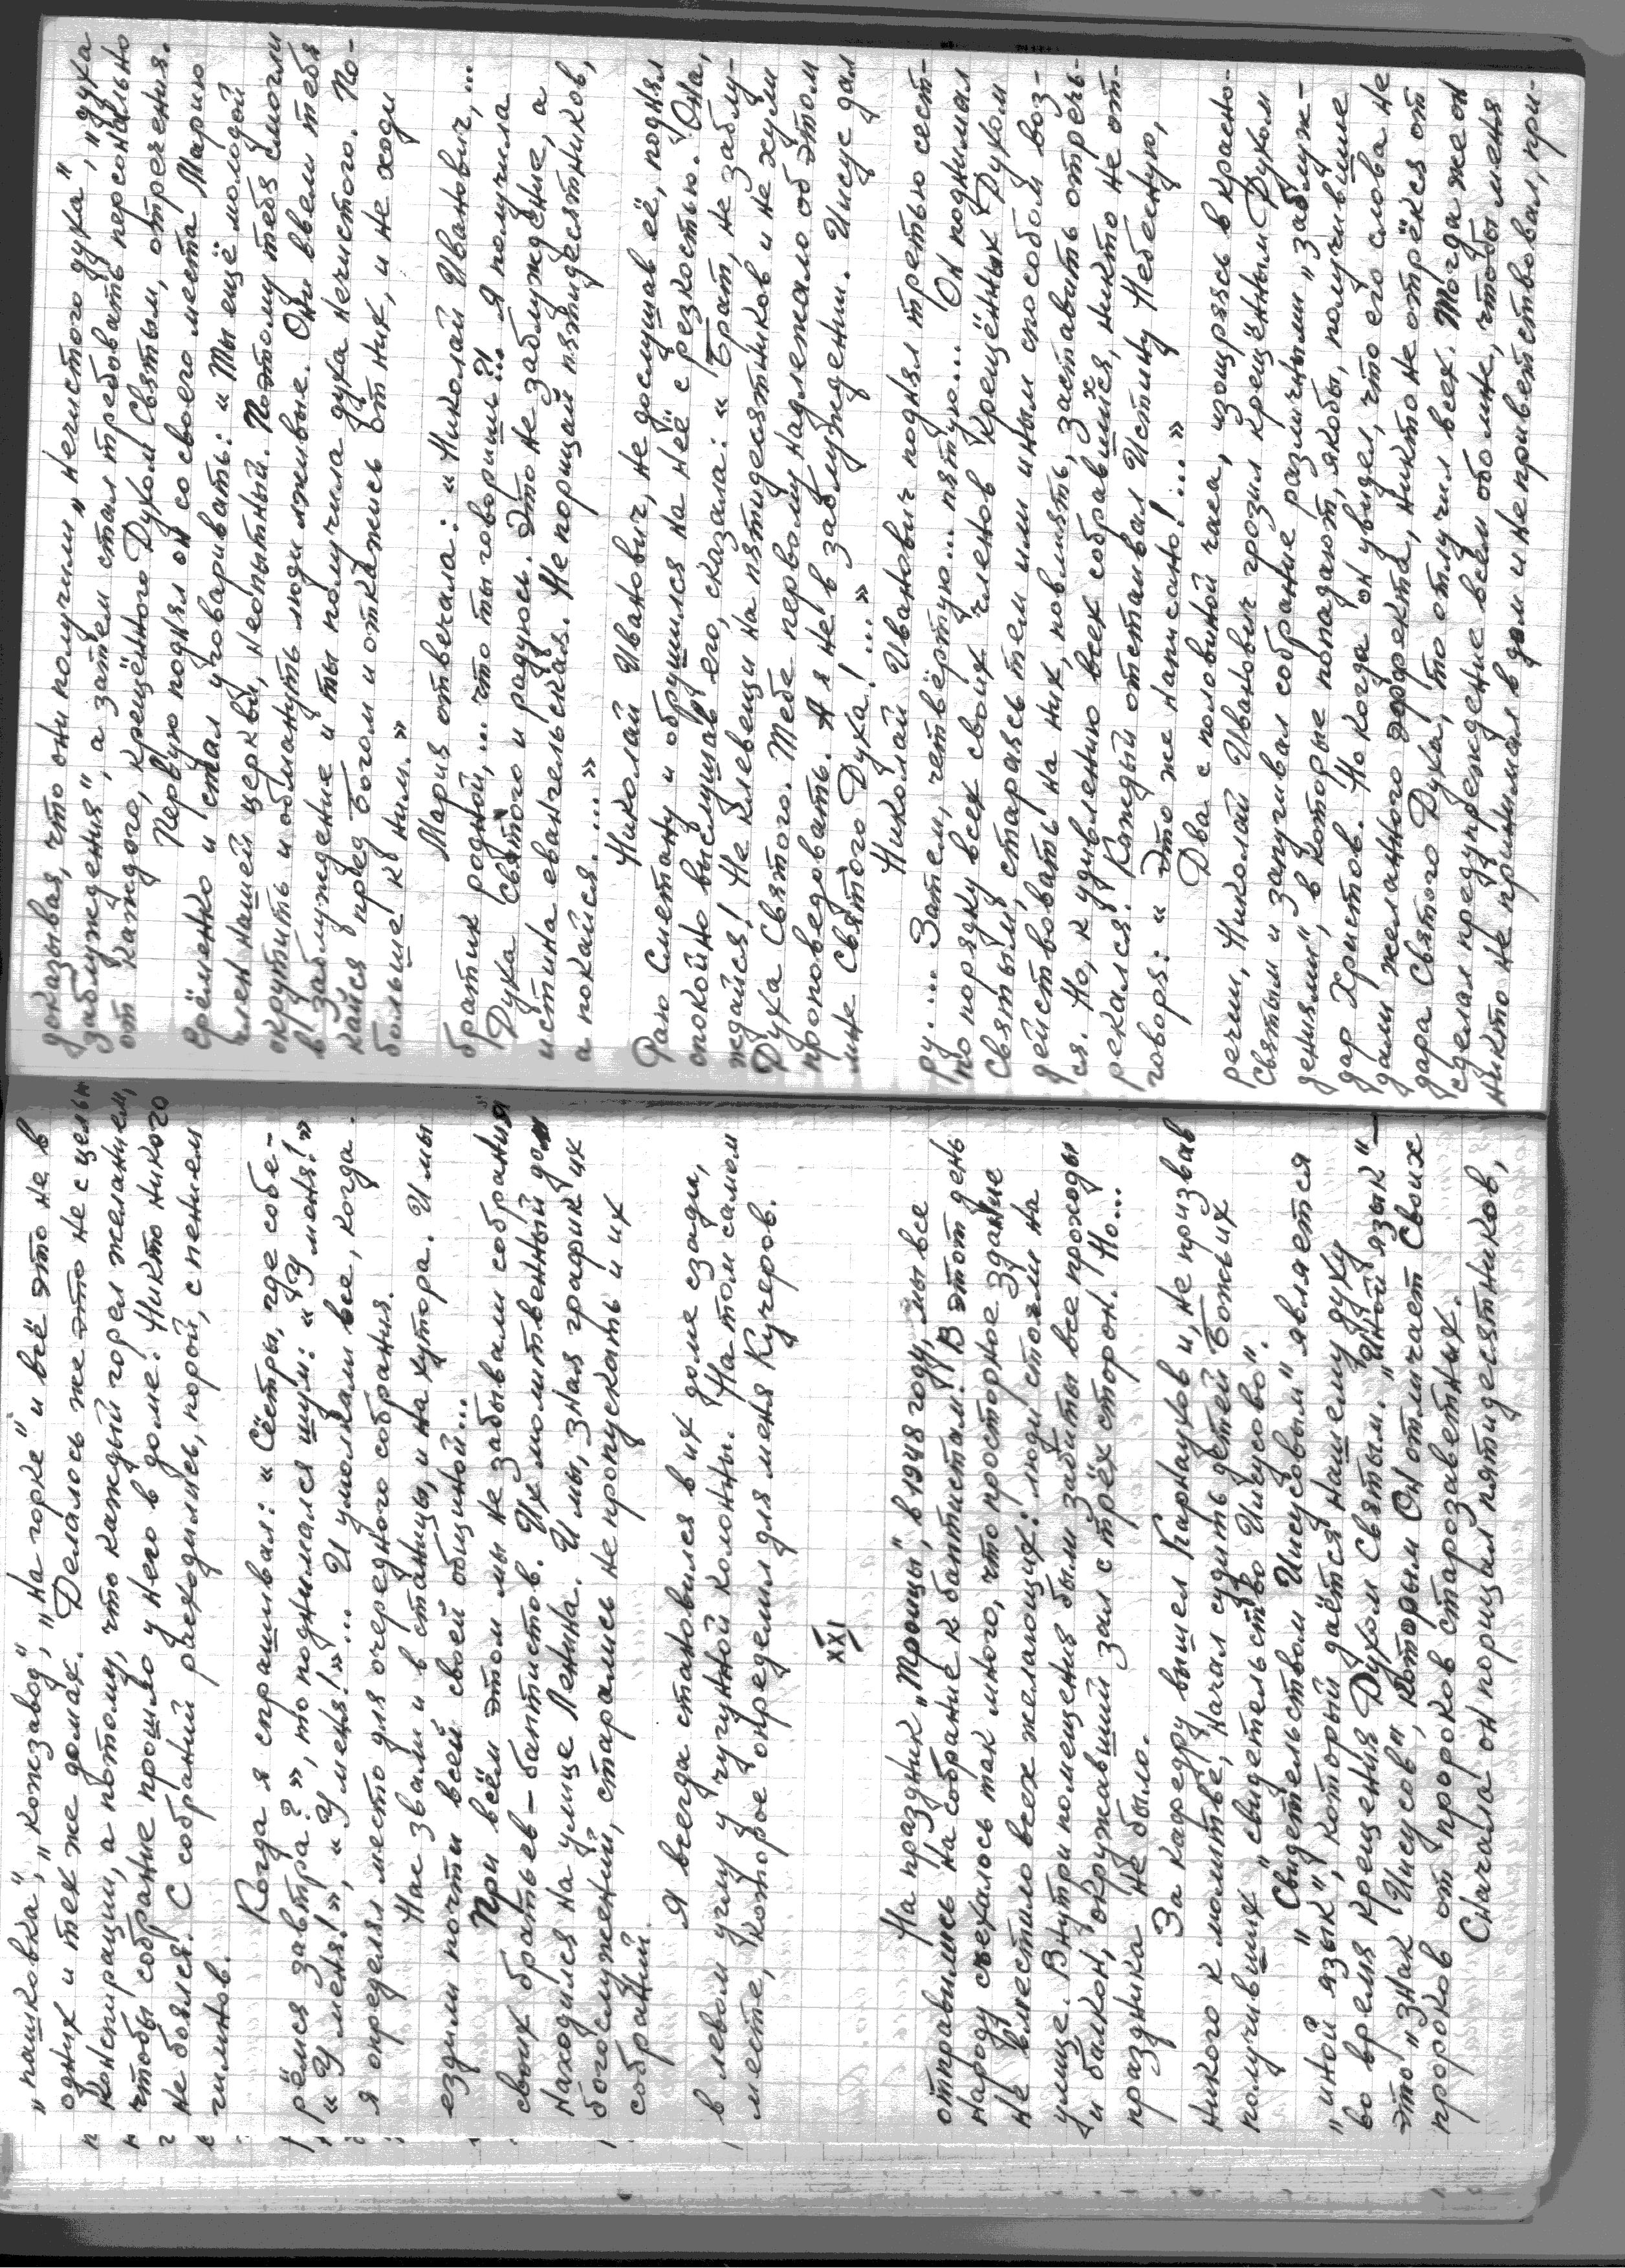 „пашковка", „кожзавод", „на горке" и всё это не в
одних и тех же домах. Делалось же это не с целью
конспирации, а потому, что каждый горел желанием,
чтобы собрание прошло у него в доме. Никто никого
не боялся. С собраний расходились, порой, с пением
гимнов.
Когда я спрашивал: «Сёстры, где собе-
рёмся завтра?», то поднимался шум: «У меня!»
«У меня!», «У меня!»... И умолкали все, когда
я определял место для очередного собрания.
Нас звали и в станицы, и на хутора. И мы
ездили почти всей своей общиной...
При всём этом мы не забывали собрания
своих братьев – баптистов. Их молитвенный дом
находился на улице Ленина. И мы, зная график их
богослужений, старались не пропускать и их
собраний.
Я всегда становился в их доме сзади,
в левом углу у чугунной колонны. На том самом
месте, которое определил для меня Кучеров.
XXI
На праздник „Троицы", в 1948 году, мы все
отправились на собрание к баптистам. В этот день
народу съехалось так много, что просторное здание
не вместило всех желающих: люди стояли на
улице. Внутри помещения были забиты все проходы
и балкон, окружавший зал с трёх сторон. Но...
праздника не было.
За кафедру вышел Карнаухов и, не призвав
никого к молитве, начал судить детей Божьих
получивших „свидетельство Иисусово".
„Свидетельством Иисусовым" является
„иной язык", который даётся нашему духу
во время крещения Духом Святым. „Иной язык" –
это „знак Иисусов", которым Он отличает Своих
пророков от пророков старозаветных.
Сначала он порицал пятидесятников,
доказывая, что они получили „нечистого духа", „духа
заблуждения", а затем стал требовать персонально
от каждого, крещённого Духом Святым, отречения.
Первую поднял он со своего места Марию
Ерёменко и стал уговаривать: «Ты ещё молодой
член нашей церкви, неопытный. Поэтому тебя смогли
окрутить и обмануть люди лживые. Они ввели тебя
в заблуждение и ты получила духа нечистого. По-
кайся пред Богом и откажись от них, и не ходи
больше к ним.»
Мария отвечала: «Николай Иванович,...
братик родной,... что ты говоришь?!... Я получила
Духа Святого и радуюсь. Это не заблуждение, а
истина евангельская. Не порицай пятидесятников,
а покайся....»
Николай Иванович, не дослушав её, поднял
Раю Сметану и обрушился на неё с резкостью. Она,
спокойно выслушав его, сказала: «Брат, не заблу-
ждайся! Не клевещи на пятидесятников и не хули
Духа Святого. Тебе первому надлежало об этом
проповедовать. А я не в заблуждении. Иисус дал
мне Святого Духа!...»
Николай Иванович поднял третью сест-
ру.... Затем, четвёртую... пятую... Он поднимал
по порядку всех своих членов крещённых Духом
Святым, стараясь тем или иным способом воз-
действовать на них, повлиять, заставить отречь-
ся. Но, к удивлению всех собравшихся, никто не от-
рекался. Каждый отстаивал Истину Небесную,
говоря: «Это же написано!...»
Два с половиной часа, изощряясь в красно-
речии, Николай Иванович грозил крещённым Духом
Святым и запугивал собрание различными „заблуж-
дениями", в которые попадают, якобы, получившие
дар Христов. Но когда он увидел, что его слова не
дали желанного эффекта, никто не отрёкся от
дара Святого Духа, то отлучил всех. Тогда же он
сделал предупреждение всем обо мне, чтобы меня
никто не принимал в дом и не приветствовал, при-